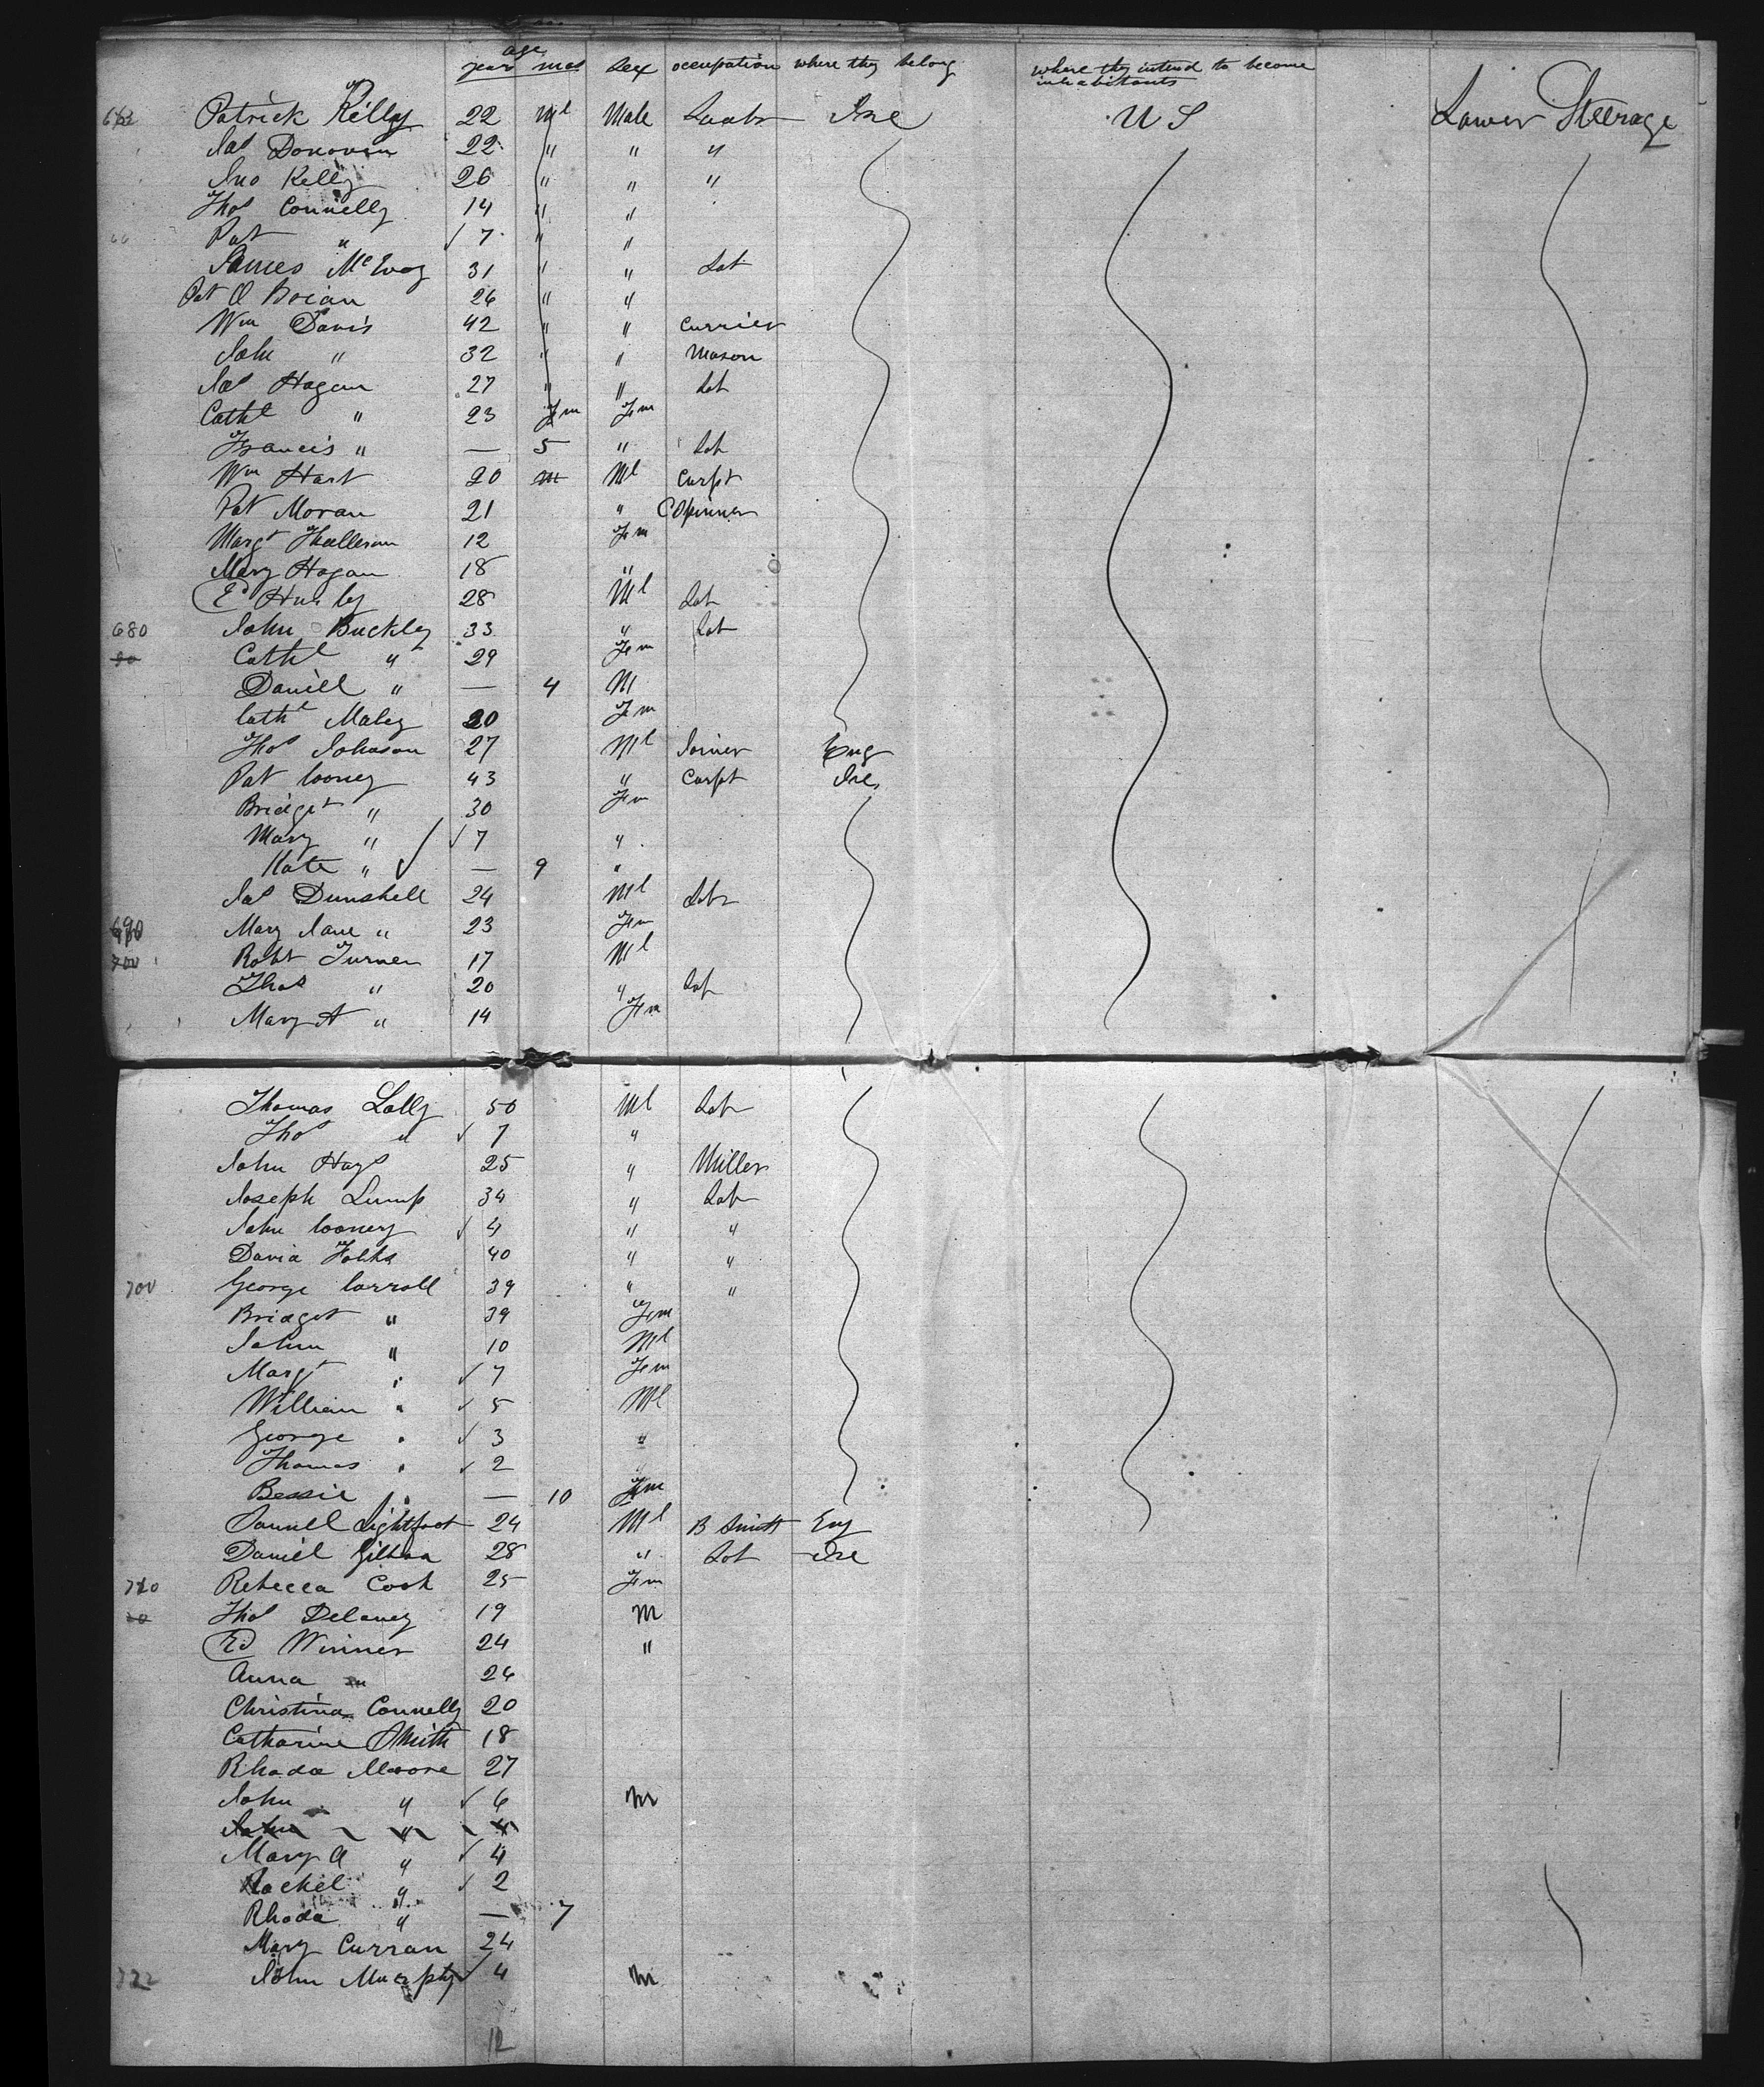 age
years mos Sex occupation where they belong where they intend to become inhabitants
Patrick Kelly 22 Ml Male Ire U S Lower Steerage
Jas Donovan 22 " " "
Jno Kelly 26 " " "
Thos Connelly 14 " "
Pat " √ 7 " "
James McEvoy 31 " " Lab
Pat O Brian 26 " "
Wm Davis 42 " " Currier
John " 32 " " Mason
Jas Hogan 27 " " Lab
Cathe " 23 Fm Fm
Francis " — 5 " Lab
Wm Hart 20 m Ml Carpt
Pat Moran 21 " C Spinner
Margt 12 Fm
Mary Hogan 18 "
Ed Hurley 28 Ml Lab
680 John Buckley 33 " Lab
80 Cathe " 29 Fm
Daniel " — 4 M
Cathe Maley 20 Fm
Thos Johnson 27 Ml Joiner Eng
Pat Cooney 43 " Carpt Ire
Bridget " 30 Fm
Mary " √ √ 7 "
Kate " √ — 9 "
Jas Dunshell 24 Ml Lab
690 Mary Jane " 23 Fm
700 Robt Turner 17 Ml
Thos " 20 " Lab
Mary A " 14 Fm
Thomas Lally 50 Ml Lab
Thos " √ 7 "
John Hays 25 " Miller
Joseph Lump 34 " Lab
John Cooney √ 4 " "
David 40 " "
700 George Carroll 39 " "
Bridget " 39 Fm
John " 10 Ml
Margt " √ 7 Fm
William " √ 5 Ml
George " √ 3 "
Thomas " √ 2 "
Bessie " — 10 Fm
Samuel Lightfoot 24 Ml B Smith Eng
Daniel 28 " Lab Ire
710 Rebecca Cook 25 Fm
Thos Delaney 19 M
Ed Winner 24 "
Anna " 24
Christina Connelly 20
Catharine Smith 18
Rhoda Moore 27
John " √ 6 M
John " 4
Mary A " √ 4
Rachel " √ 2
Rhoda " — 7
Mary Curran 24
722 John Murphy √ 4 M
12